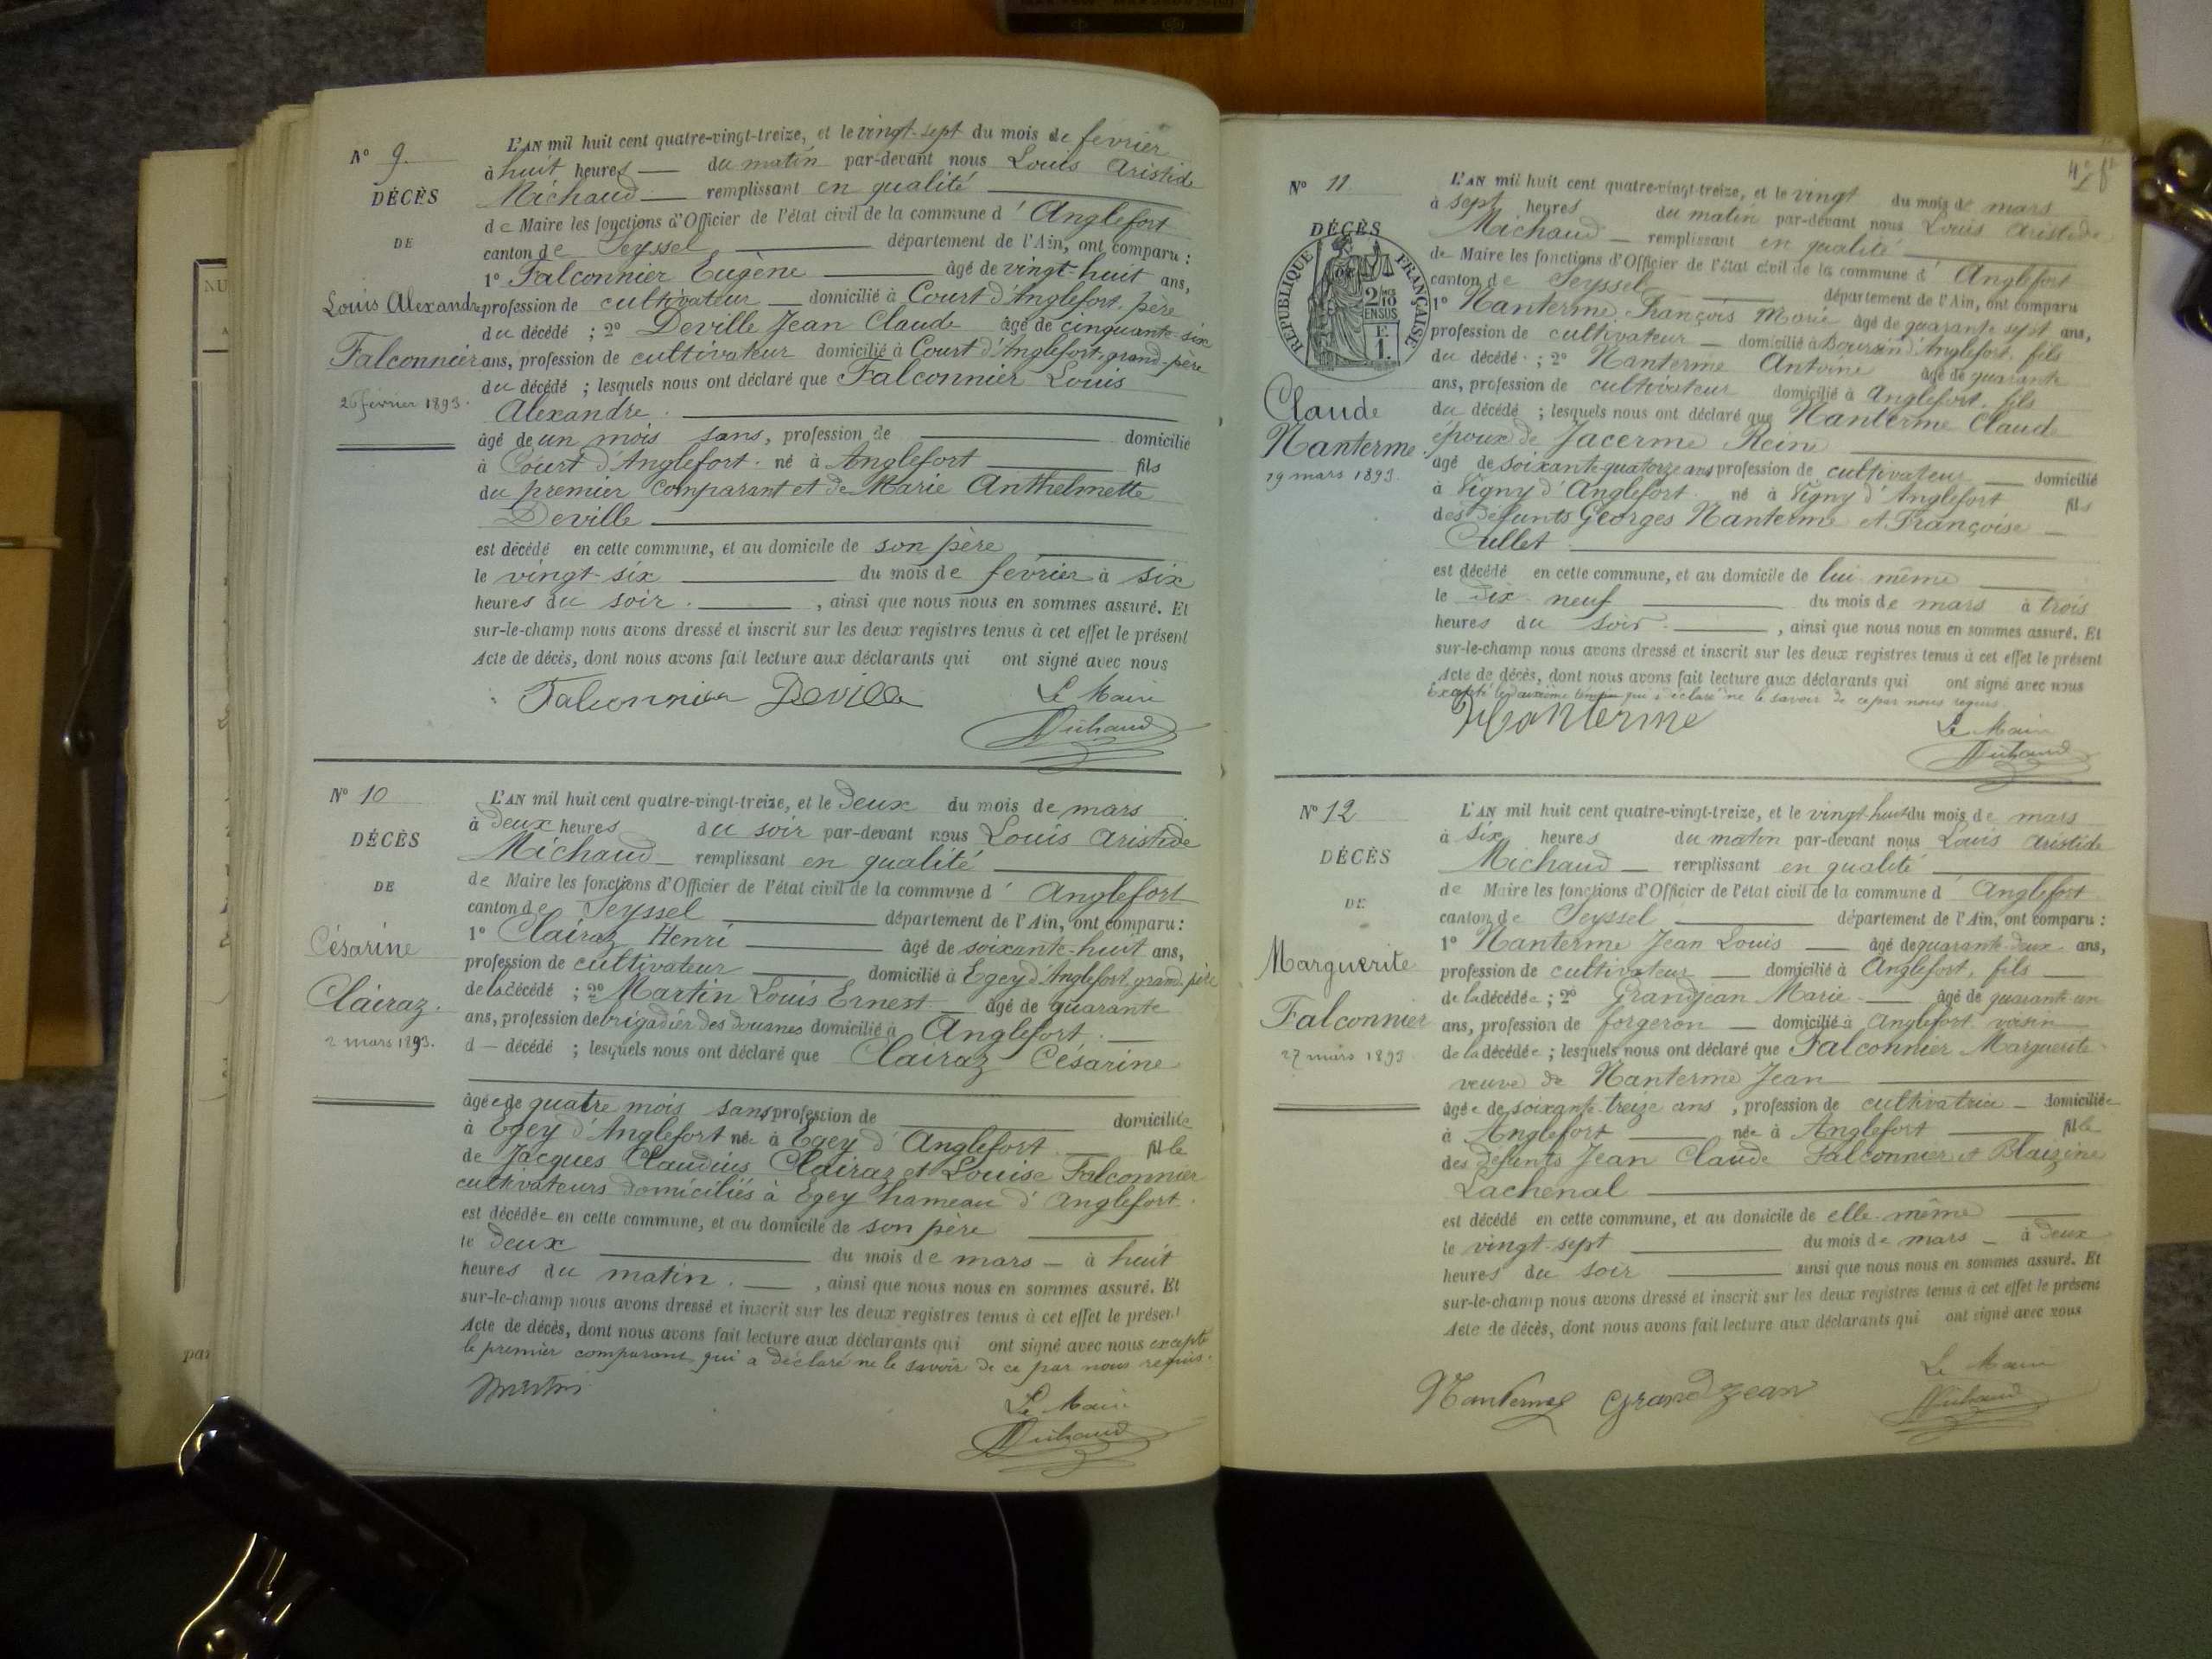 N° 9.
DÉCÈS
DE
Louis Alexandre
Falconnier
26 février 1893.
L'AN mil huit cent quatre-vingt-treize, et le vingt-sept du mois de février
à huit heures — du matin par-devant nous Louis Aristide
Michaud — remplissant en qualité
de Maire les fonctions d'Officier de l'état civil de la commune d' Anglefort
canton de Seyssel département de l'Ain, ont comparu :
1° Falconnier Eugène âgé de vingt-huit ans,
profession de cultivateur — domicilié à Court d'Anglefort, père
du décédé ; 2° Deville Jean Claude âgé de cinquante-six
ans, profession de cultivateur domicilié à Court d'Anglefort, grand-père
du décédé ; lesquels nous ont déclaré que Falconnier Louis
Alexandre.
âgé de un mois sans, profession de domicilié
à Court d'Anglefort. né à Anglefort fils
du premier comparant et de Marie Anthelmette
Deville
est décédé en cette commune, et au domicile de son père
le vingt-six du mois de février à six
heures du soir. , ainsi que nous nous en sommes assuré. Et
sur-le-champ nous avons dressé et inscrit sur les deux registres tenus à cet effet le présent
Acte de décès, dont nous avons fait lecture aux déclarants qui ont signé avec nous
Falconnier Deville Le Maire
Michaud
N° 10
DÉCÈS
DE
Césarine
Clairaz.
2 mars 1893.
L'AN mil huit cent quatre-vingt-treize, et le deux du mois de mars
à deux heures du soir par-devant nous Louis Aristide
Michaud — remplissant en qualité
de Maire les fonctions d'Officier de l'état civil de la commune d' Anglefort
canton de Seyssel département de l'Ain, ont comparu :
1° Clairaz Henri âgé de soixante-huit ans,
profession de cultivateur domicilié à Egey d'Anglefort, grand-père
de la décédé ; 2° Martin Louis Ernest — âgé de quarante
ans, profession de brigadier des douanes domicilié à Anglefort.
d — décédé ; lesquels nous ont déclaré que Clairaz Césarine
âgée de quatre mois sans profession de domiciliée
à Egey d'Anglefort née à Egey d'Anglefort fille
de Jacques Claudius Clairaz et Louise Falconnier
cultivateurs domiciliés à Egey hameau d'Anglefort.
est décédée en cette commune, et au domicile de son père
le deux du mois de mars — à huit
heures du matin. — , ainsi que nous nous en sommes assuré. Et
sur-le-champ nous avons dressé et inscrit sur les deux registres tenus à cet effet le présent
Acte de décès, dont nous avons fait lecture aux déclarants qui ont signé avec nous excepté
le premier comparant qui a déclaré ne le savoir de ce par nous requis.
Martin
Le Maire
Michaud
N° 11
DÉCÈS
RÉPUBLIQUE FRANÇAISE
2/10 EN SUS
F.
1.
Claude
Nanterme.
19 mars 1893.
L'AN mil huit cent quatre-vingt-treize, et le vingt du mois de mars
à sept heures du matin par-devant nous Louis Aristide
Michaud — remplissant en qualité
de Maire les fonctions d'Officier de l'état civil de la commune d' Anglefort
canton de Seyssel département de l'Ain, ont comparu
1° Nanterme François Marie âgé de quarante sept ans,
profession de cultivateur — domicilié à Boursin d'Anglefort, fils
du décédé ; 2° Nanterme Antoine âgé de quarante
ans, profession de cultivateur domicilié à Anglefort. fils
du décédé ; lesquels nous ont déclaré que Nanterme Claude
époux de Jacerme Reine
âgé de soixante-quatorze ans profession de cultivateur — domicilié
à Vigny d'Anglefort. né à Vigny d'Anglefort fils
des défunts Georges Nanterme et Françoise —
Cullet
est décédé en cette commune, et au domicile de lui même
le dix-neuf du mois de mars à trois
heures du soir. , ainsi que nous nous en sommes assuré. Et
sur-le-champ nous avons dressé et inscrit sur les deux registres tenus à cet effet le présent
Acte de décès, dont nous avons fait lecture aux déclarants qui ont signé avec nous
Excepté le deuxième qui a déclaré ne le savoir de ce par nous requis
Nanterme
Le Maire
Michaud
N° 12
DÉCÈS
DE
Marguerite
Falconnier
27 mars 1893
L'AN mil huit cent quatre-vingt-treize, et le vingt-huit du mois de mars
à six heures du matin par-devant nous Louis Aristide
Michaud — remplissant en qualité
de Maire les fonctions d'Officier de l'état civil de la commune d' Anglefort
canton de Seyssel département de l'Ain, ont comparu :
1° Nanterme Jean Louis — âgé de quarante-deux ans,
profession de cultivateur — domicilié à Anglefort, fils —
de la décédée ; 2° Grandjean Marie — âgé de quarante un
ans, profession de forgeron — domicilié à Anglefort voisin
de la décédée ; lesquels nous ont déclaré que Falconnier Marguerite
veuve de Nanterme Jean
âgée de soixante-treize ans , profession de cultivatrice — domiciliée
à Anglefort née à Anglefort fille
des défunts Jean Claude Falconnier et Blaizine
Lachenal
est décédé en cette commune, et au domicile de elle-même
le vingt-sept du mois de mars — à deux
heures du soir ainsi que nous nous en sommes assuré. Et
sur-le-champ nous avons dressé et inscrit sur les deux registres tenus à cet effet le présent
Acte de décès, dont nous avons fait lecture aux déclarants qui ont signé avec nous
Nanterme Grandjean
Le Maire
Michaud